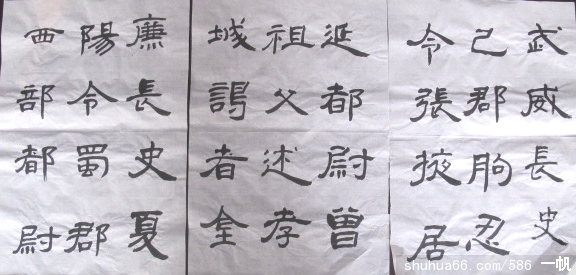 武威長史
巴郡朐忍
令張掖居
延都尉曾
祖父述孝
城謁者金
廉長史夏
陽令蜀郡
西部都尉
shuhua66.com/586 一帆